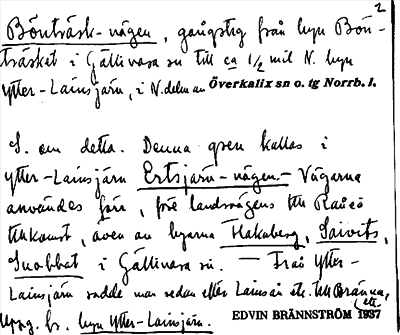 2
Bönträsk-vägen, gångstig från byn Bön-
träsket i Gällivara sn till ca 1/2 mil N. byn
Ytter-Lainsjärn, i N. delen av Överkalix sn o. tg Norrb. l.
S. om detta. Denna gren kallas i
Ytter-Lainsjärn Ertsjärn-vägen. - Vägarna
användes förr, före landsvägens till Råneå
tillkomst, även av byarna Flakaberg, Saivits,
Snobbat i Gällivara sn. — Från Ytter-
Lainsjärn rodde man sedan efter Lainså etc. till Bränna, etc.
Uppg. fr. byn Ytter-Lainsjärn.
EDVIN BRÄNNSTRÖM 1937